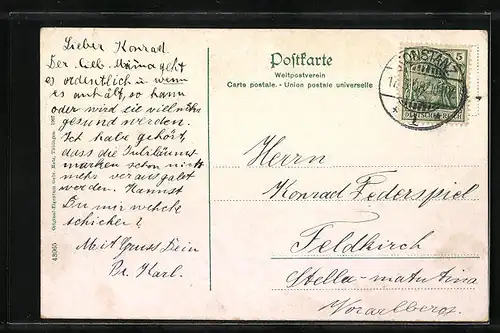 Lieber Konrad.
Der lieb. Mama geht
es ordentlich u. wenn
es anhält, so kann
oder wird sie
gesund werden.
Ich habe gehört,
dass die Jubiläums-
marken schon nicht
mehr verausgabt
werden. Kannst
Du mir welche
schicken?
Mit Gruss Dein
Br. Karl.
Postkarte
Weltpostverein
Carte postale. - Union postale universelle
KONSTANZ
5
DEUTSCHES REICH
Herrn
Konrad Federspiel
Feldkirch
Stella-matutina
Vorarlberg.
43065